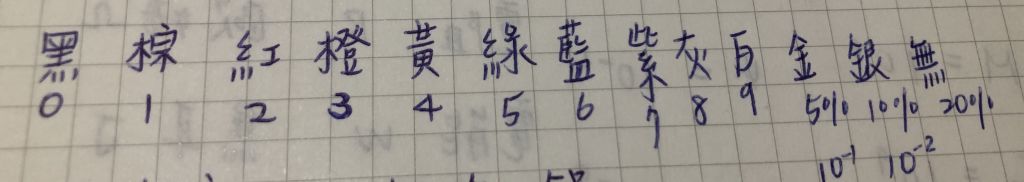 黑 棕 紅 橙 黃 綠 藍 紫 灰 白 金 銀 無
0 1 2 3 4 5 6 7 8 9 5% 10% 20%
10⁻¹ 10⁻²